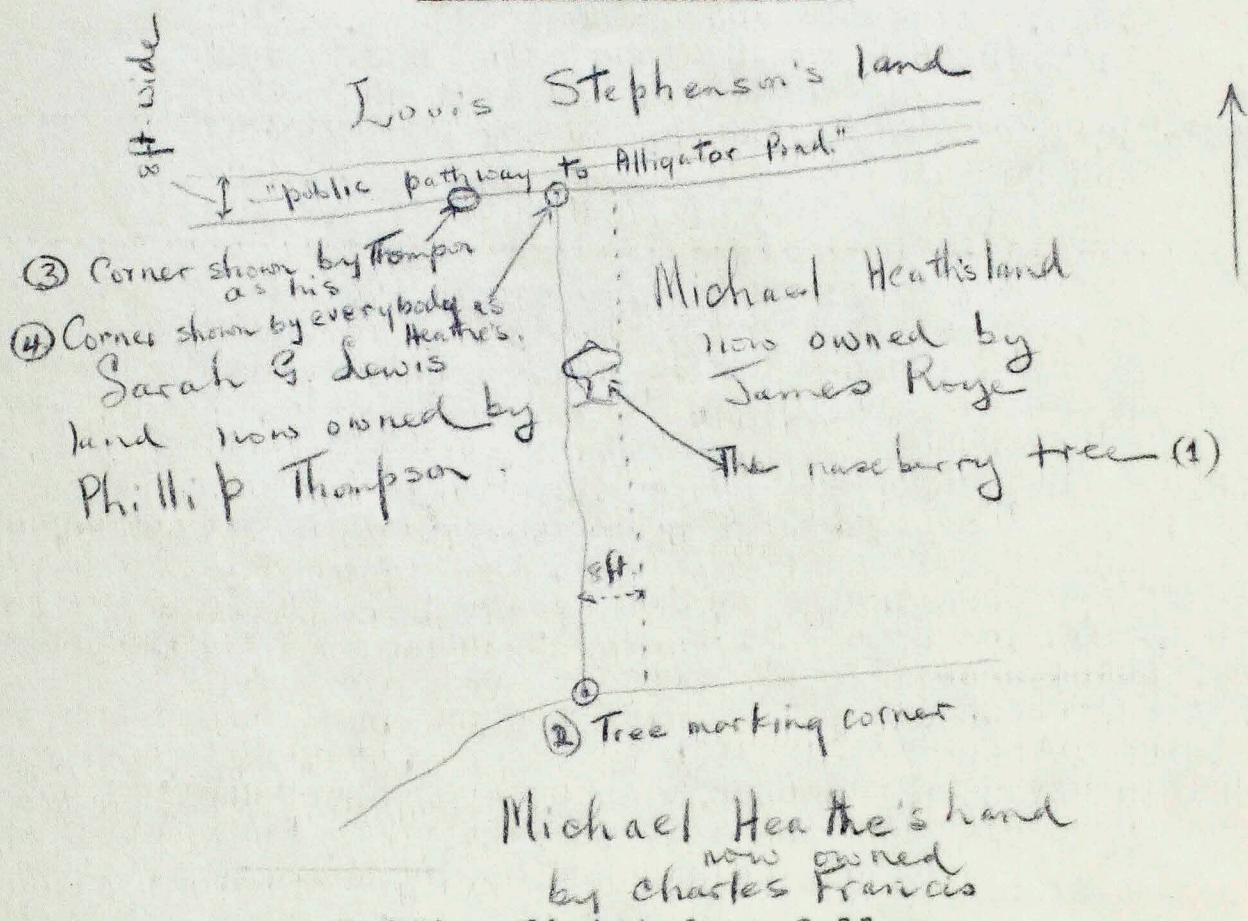 8ft. wide
Louis Stephenson's land
"public pathway to Alligator Pond."
③ Corner shown by Thompson
as his
④ Corner shown by everybody as
Heathe's.
Sarah G. Lewis
land now owned by
Phillip Thompson.
Michael Heath's land
now owned by
James Roye
The naseberry tree (1)
8ft.
② Tree marking corner.
Michael Heathe's land
now owned
by Charles Francis